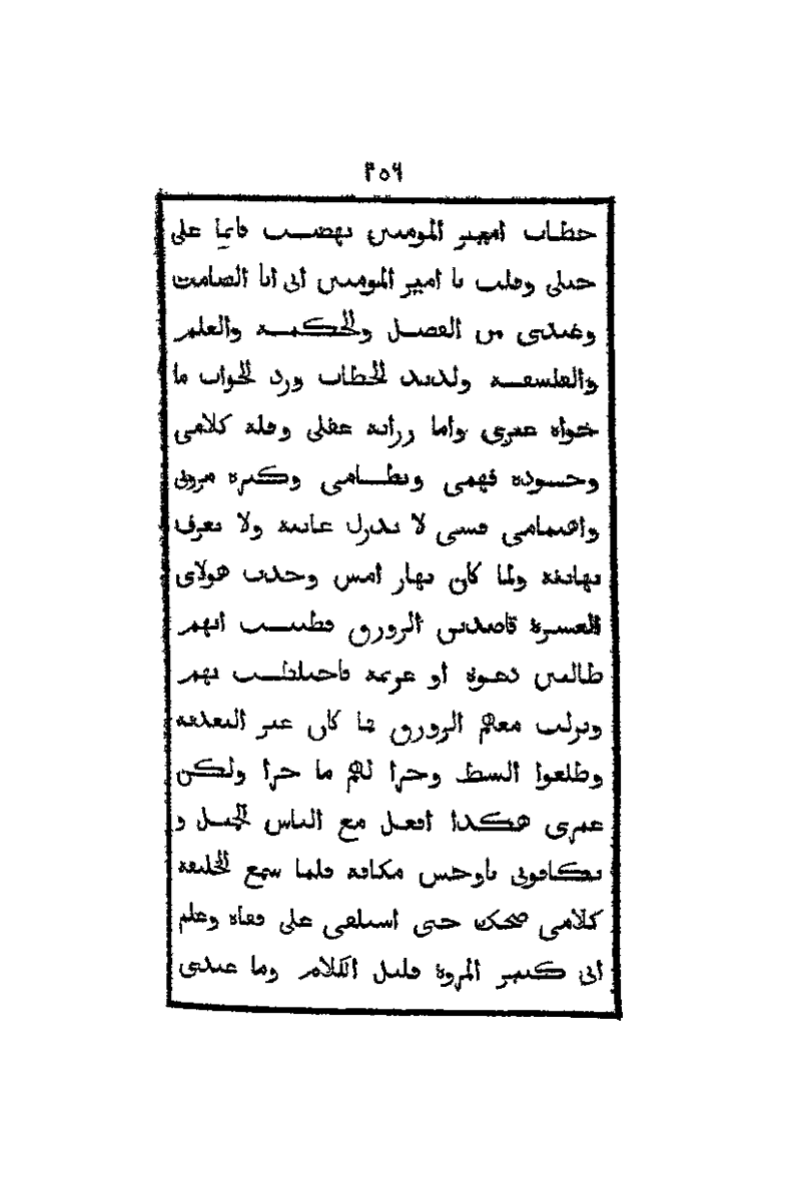 خطاب امير المومنين نهضت قايما على
حيلى وقلت يا امير المومنين انى انا الصامت
وعندى من الفضل والحكمة والعلم
والفلسفة ولديد الخطاب ورد الجواب ما
حواه غيرى واما رزانة عقلى وقلة كلامى
وجسودة فهمى ونظامى وكثرة مروتى
واهتمامى فشى لا تدرك غايته ولا تعرف
نهايته ولما كان نهار امس وجدت هولاى
العشرة قاصدين الزورق فظننت انهم
طالبين دعوة او عزيمة فاختلطت بهم
ونزلت معهم الزورق فما كان غير التعدية
وطلعوا الشط وجرا لهم ما جرا ولكن
عمرى هكدا افعل مع الناس الجميل و
يكافونى باوحس مكافة فلما سمع الخليفة
كلامى ضحك حتى استلقى على قفاه وعلم
انى كثير المروة قليل الكلام وما عندى